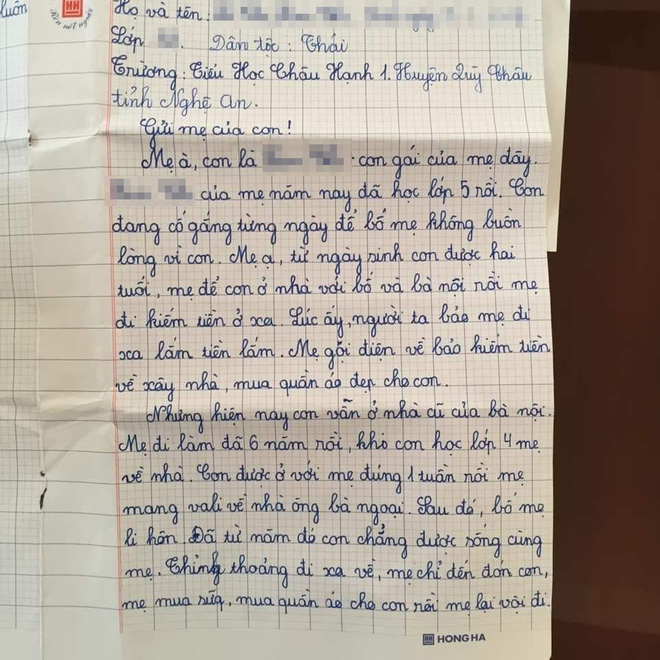 luôn
HH
Nên nét người
Họ và tên:
Lớp
Dân tộc: Thái
Trường: Tiểu Học Châu Hạnh 1. Huyện Quỳ Châu
tỉnh Nghệ An.
Gửi mẹ của con!
Mẹ à, con là : con gái của mẹ đây.
của mẹ năm nay đã học lớp 5 rồi. Con
đang cố gắng từng ngày để bố mẹ không buồn
lòng vì con. Mẹ ạ, từ ngày sinh con được hai
tuổi, mẹ để con ở nhà với bố và bà nội rồi mẹ
đi kiếm tiền ở xa. Lúc ấy, người ta bảo mẹ đi
xa lắm tiền lắm. Mẹ gọi điện về bảo kiếm tiền
về xây nhà, mua quần áo đẹp cho con.
Nhưng hiện nay con vẫn ở nhà cũ của bà nội.
Mẹ đi làm đã 6 năm rồi, khi con học lớp 4 mẹ
về nhà. Con được ở với mẹ đúng 1 tuần rồi mẹ
mang vali về nhà ông bà ngoại. Sau đó, bố mẹ
li hôn. Đã từ năm đó con chẳng được sống cùng
mẹ. Thỉnh thoảng đi xa về, mẹ chỉ đến đón con,
mẹ mua sữa, mua quần áo cho con rồi mẹ lại vội đi.
HH HONG HA